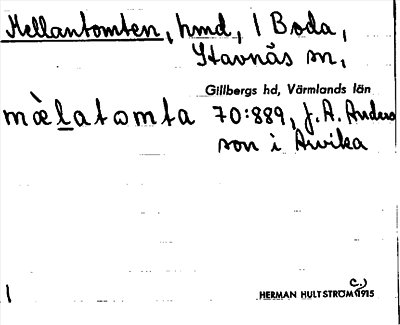 Mellantomten, hmd, 1 Boda,
Stavnäs sn,
Gillbergs hd, Värmlands län
mæ̀latomta 70:889, J. A. Anders
son i Arvika
HERMAN HULTSTRÖM (c.) 1915